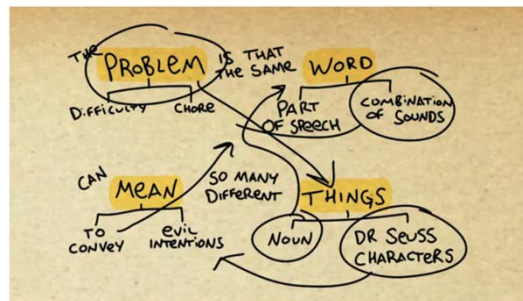 THE PROBLEM IS THAT
THE SAME WORD
DIFFICULTY CHORE
PART
OF SPEECH
COMBINATION
OF SOUNDS
CAN MEAN SO MANY
DIFFERENT THINGS
TO
CONVEY
EVIL
INTENTIONS
NOUN
DR SEUSS
CHARACTERS